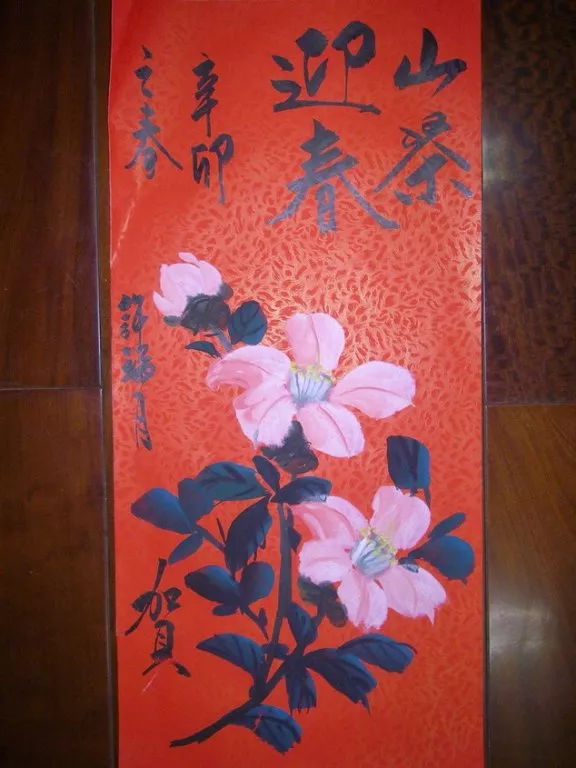 山茶
迎春
辛卯
之春
許福月
賀